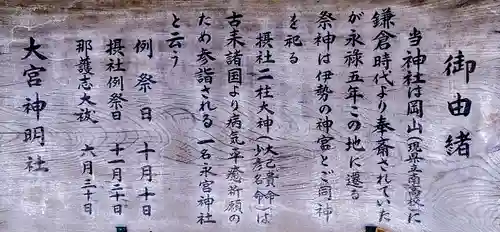 御由緒
当神社は岡山(現県立朝日高校)に
鎌倉時代より奉斎されていた
が永禄五年この地に遷る
祭神は伊勢の神宮とご同神
を祀る
摂社二柱大神(大己貴命・少彦名命)は
古来諸国より病気平癒祈願の
ため参詣される 一名永宮神社
と云う
例祭日 十月十日
摂社例祭日 十一月二十日
那護志大祓 六月三十日
大宮神明社